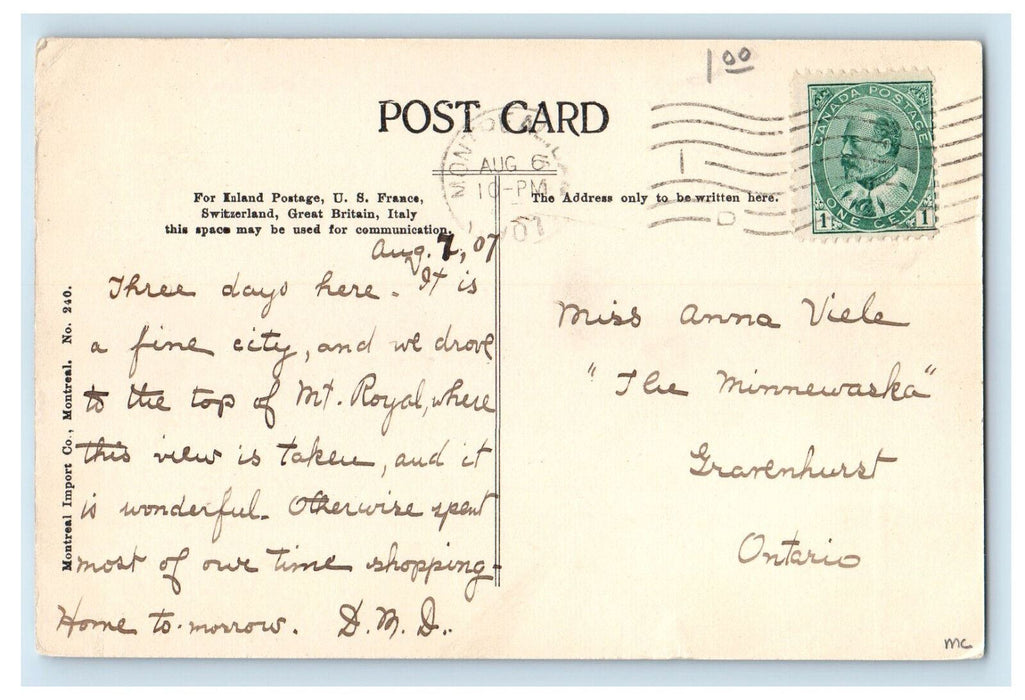 1.00
POST CARD
CANADA POSTAGE
1 ONE CENT 1
MONTREAL
AUG 6
10-PM
07
I
D
For Inland Postage, U. S. France,
Switzerland, Great Britain, Italy
this space may be used for communication.
The Address only to be written here.
Aug. 7, 07
Three days here. It is
a fine city, and we drove
to the top of Mt. Royal, where
this view is taken, and it
is wonderful. Otherwise spent
most of our time shopping-
Home to-morrow. D. M. D..
Miss Anna Viele
"The Minnewaska"
Gravenhurst
Ontario
Montreal Import Co., Montreal. No. 240.
MC